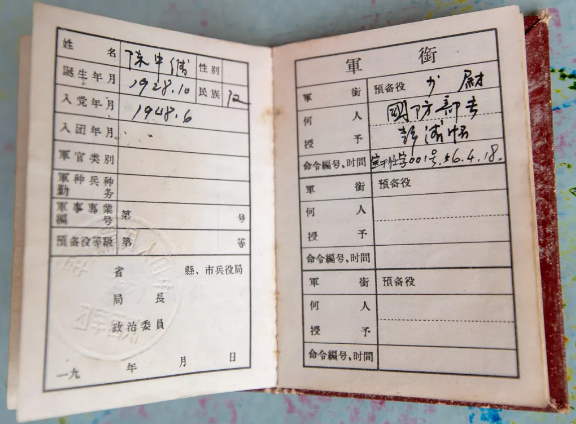 姓名 陈中儒 性别
誕生年月 1928.10 民族 汉
入党年月 1948.6
入团年月
軍官类别
軍种兵种
勤务
軍事專業
編号 第 号
預备役等級 第 等
省 縣、市兵役局
局長
政治委員
一九 年 月 日
軍銜
軍銜 預备役 少尉
何人 國防部长
授予 彭德怀
命令編号、时間 001号.56.4.18.
軍銜 預备役
何人
授予
命令編号、时間
軍銜 預备役
何人
授予
命令編号、时間